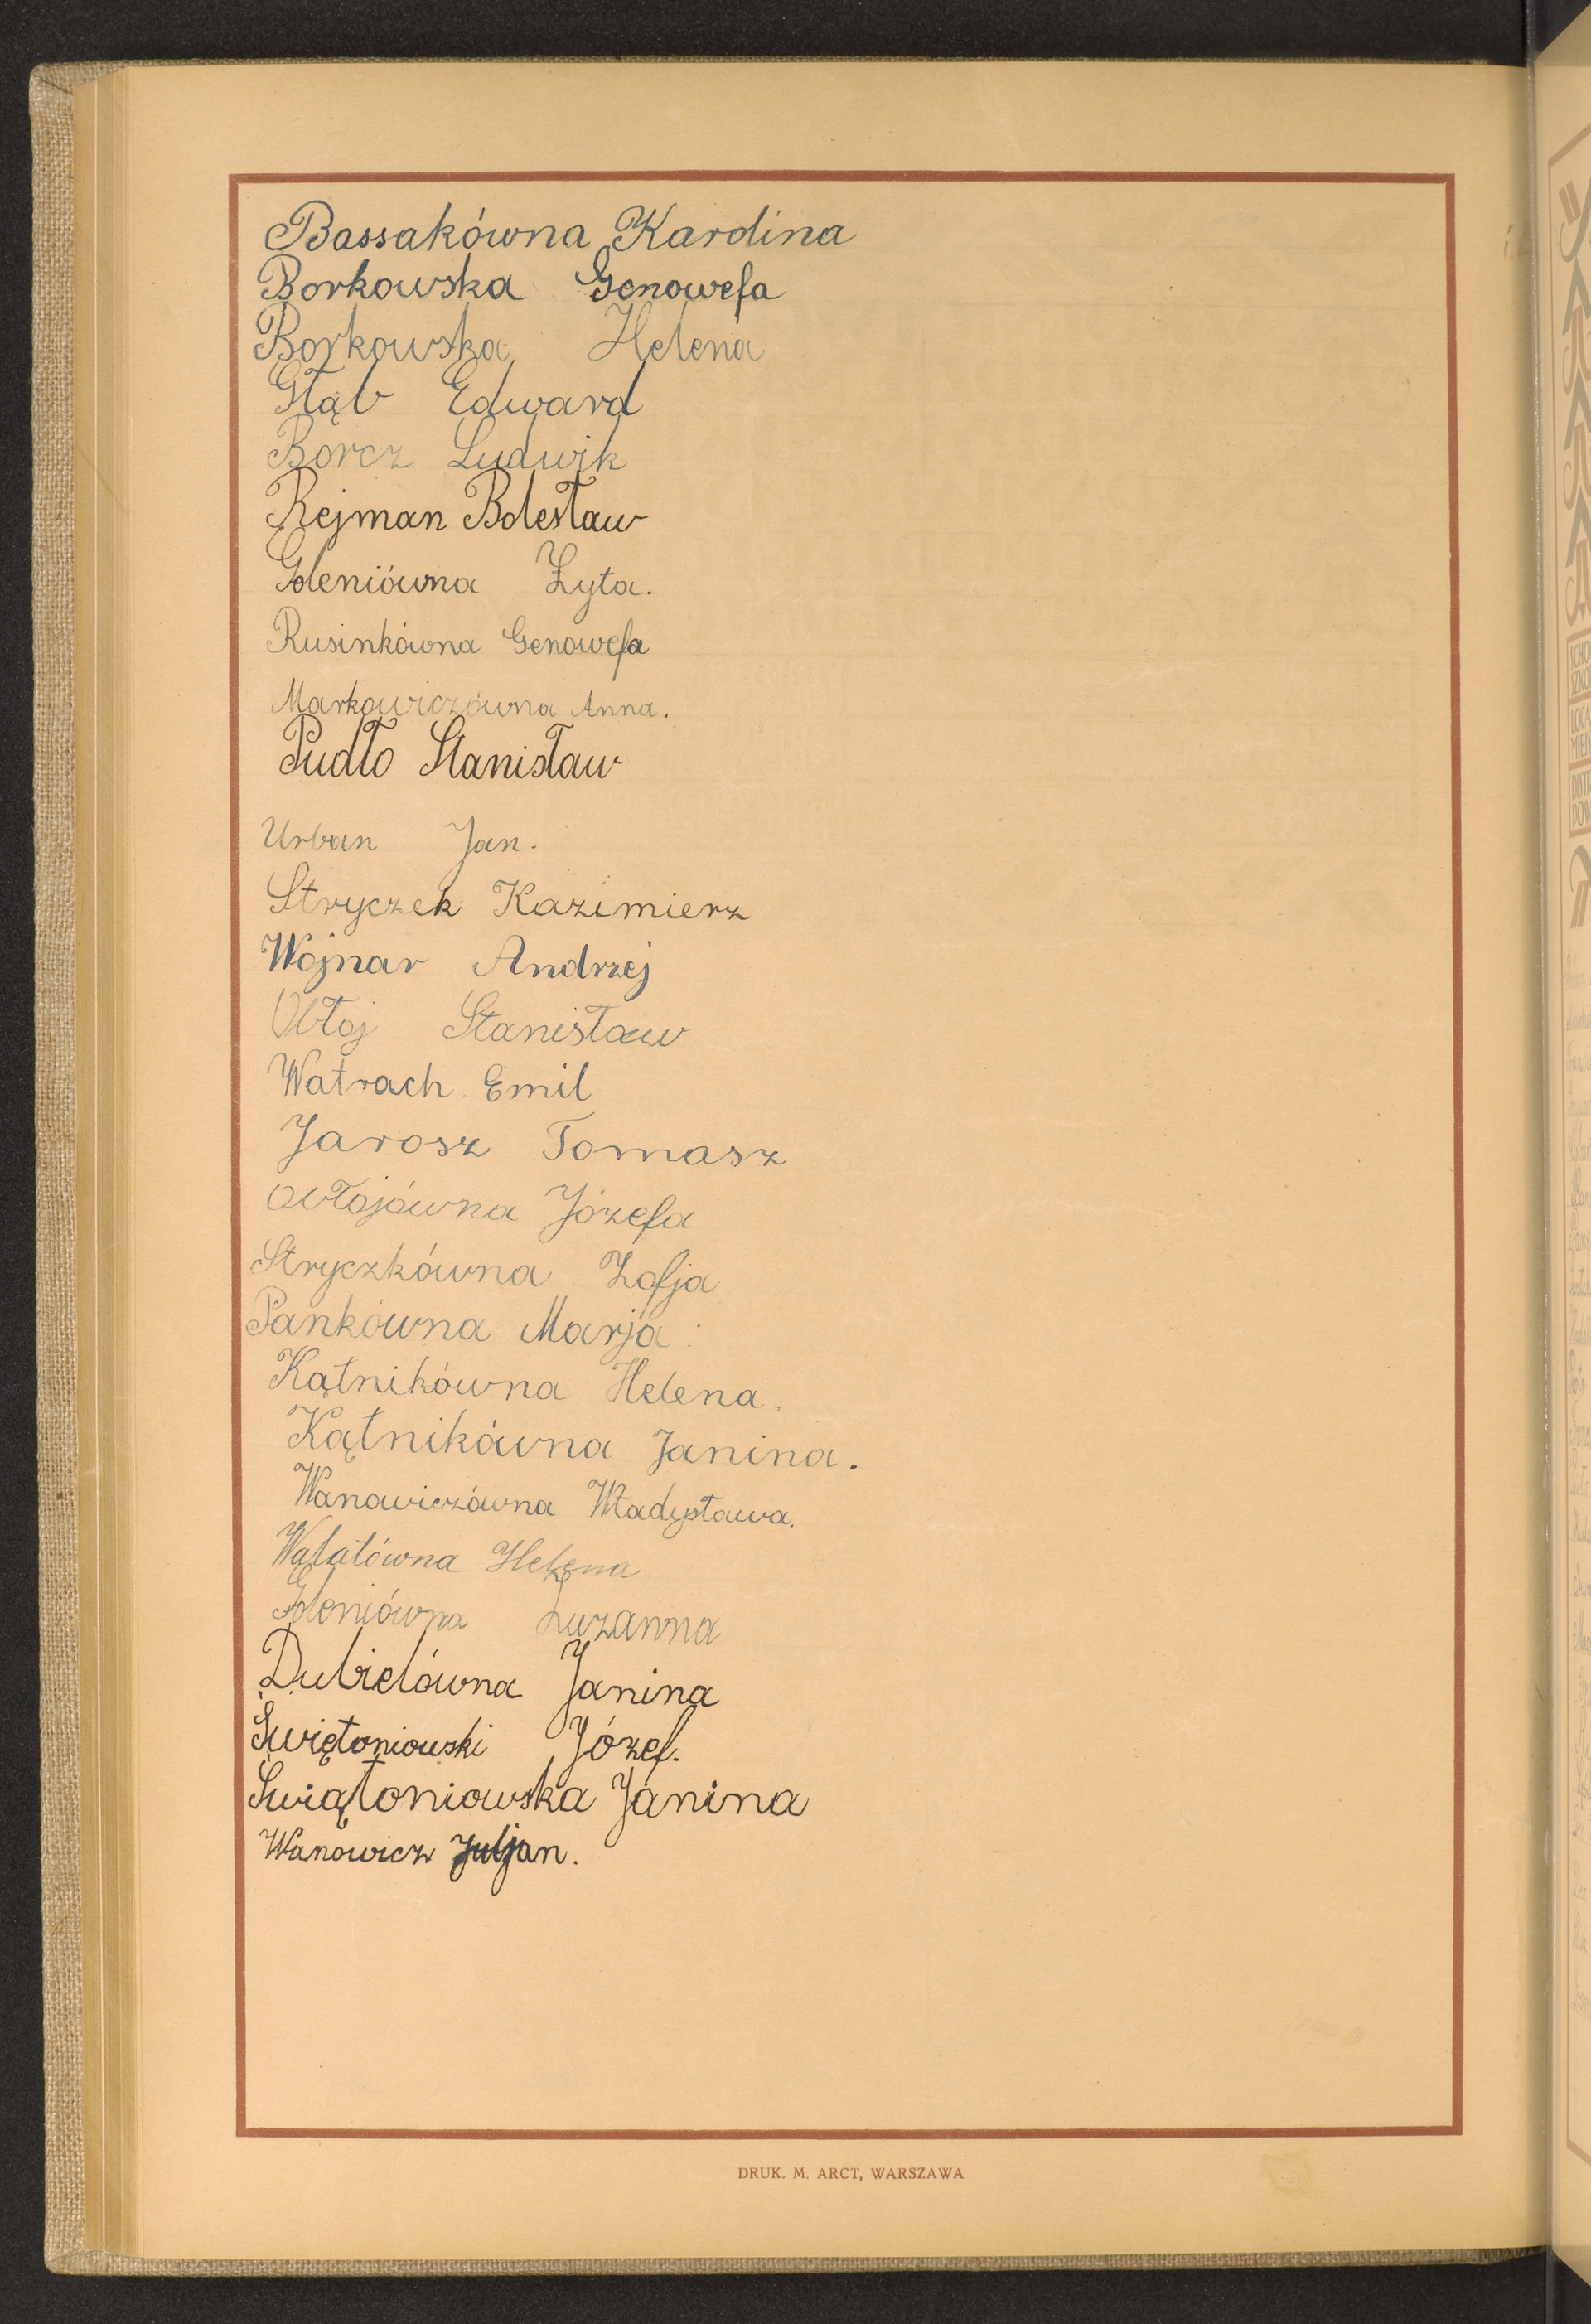 Bassakówna Karolina
Borkowska Genowefa
Borkowska Helena
Głąb Edward
Borcz Ludwik
Rejman Bolesław
Goleniówna Zyta.
Rusinkówna Genowefa
Markowiczówna Anna.
Pudło Stanisław
Urban Jan.
Stryczek Kazimierz
Wojnar Andrzej
Obłoj Stanisław
Watrach Emil
Jarosz Tomasz
Obłojówna Józefa
Stryczkówna Zofja
Pankówna Marja
Kątnikówna Helena.
Kątnikówna Janina.
Wanowiczówna Władysława.
Helena
Goleniówna Zuzanna
Dubielówna Janina
Świętoniowski Józef.
Świątoniowska Janina
Wanowicz Juljan.
DRUK. M. ARCT, WARSZAWA